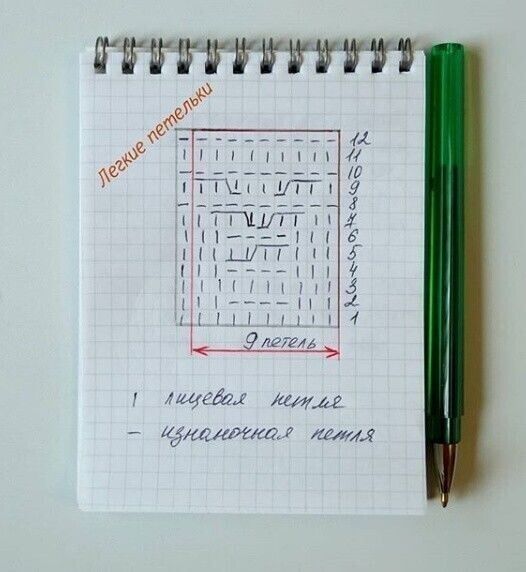 Легкие петельки
12
11
10
9
8
7
6
5
4
3
2
1
9 петель
| лицевая петля
– изнаночная петля